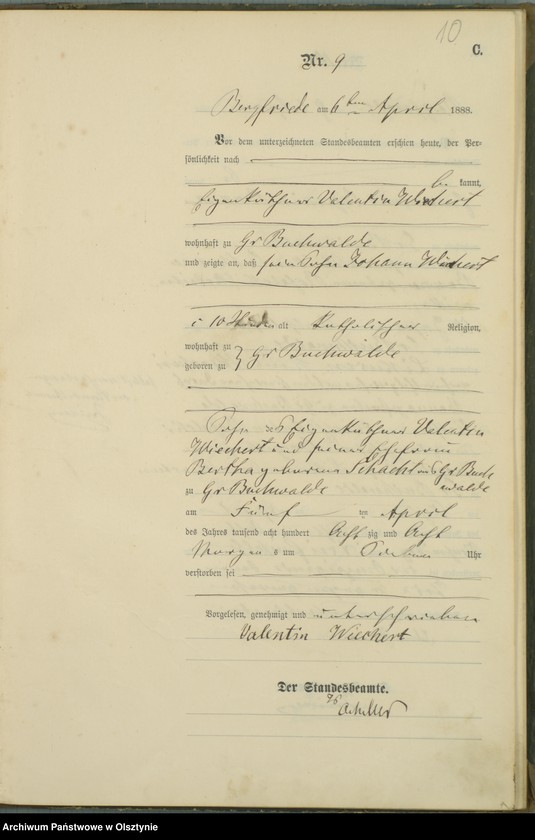 10
C.
Nr. 9
Bergfriede am 6ten April 1888.
Vor dem unterzeichneten Standesbeamten erschien heute, der Per-
sönlichkeit nach
be kannt,
Eigenkäthner Valentin Wiechert
wohnhaft zu Gr Buchwalde
und zeigte an, daß sein Sohn Johann Wiechert
10 Stunden alt Katholischer Religion,
wohnhaft zu
geboren zu } Gr Buchwalde
Sohn des Eigenkäthner Valentin
Wiechert und seiner Ehefrau
Bertha geborene Schacht aus Gr Buch
walde
zu Gr Buchwalde
am Fünf ten April
des Jahres tausend acht hundert Acht zig und Acht
Morgen s um Sieben Uhr
verstorben sei
Vorgelesen, genehmigt und unterschrieben
Valentin Wiechert
Der Standesbeamte.
Archiwum Państwowe w Olsztynie